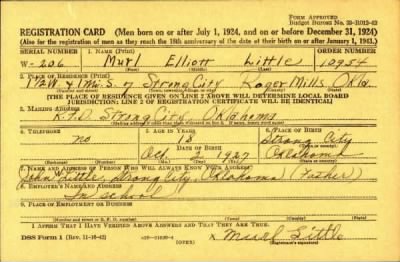 FORM APPROVED
Budget Bureau No. 33-R012-42
REGISTRATION CARD (Men born on or after July 1, 1924, and on or before December 31, 1924)
(Also for the registration of men as they reach the 18th anniversary of the date of their birth on or after January 1, 1943.)
SERIAL NUMBER 1. NAME (Print) ORDER NUMBER
W-206 Murl Elliott Little 10954
2. PLACE OF RESIDENCE (Print)
Strong City Roger Mills Okla.
[THE PLACE OF RESIDENCE GIVEN ON LINE 2 ABOVE WILL DETERMINE LOCAL BOARD
JURISDICTION; LINE 2 OF REGISTRATION CERTIFICATE WILL BE IDENTICAL]
3. MAILING ADDRESS
R.F.D. Strong City, Oklahoma
4. TELEPHONE 5. AGE IN YEARS 6. PLACE OF BIRTH
no 18 Strong City
DATE OF BIRTH
Oct 1927 Oklahoma
7. NAME AND ADDRESS OF PERSON WHO WILL ALWAYS KNOW YOUR ADDRESS
John Little, Strong City, Oklahoma (Father)
8. EMPLOYER'S NAME AND ADDRESS
In school
9. PLACE OF EMPLOYMENT OR BUSINESS
I AFFIRM THAT I HAVE VERIFIED ABOVE ANSWERS AND THAT THEY ARE TRUE.
DSS Form 1 (Rev. 11-16-42) (OVER) Little
(Registrant's signature)